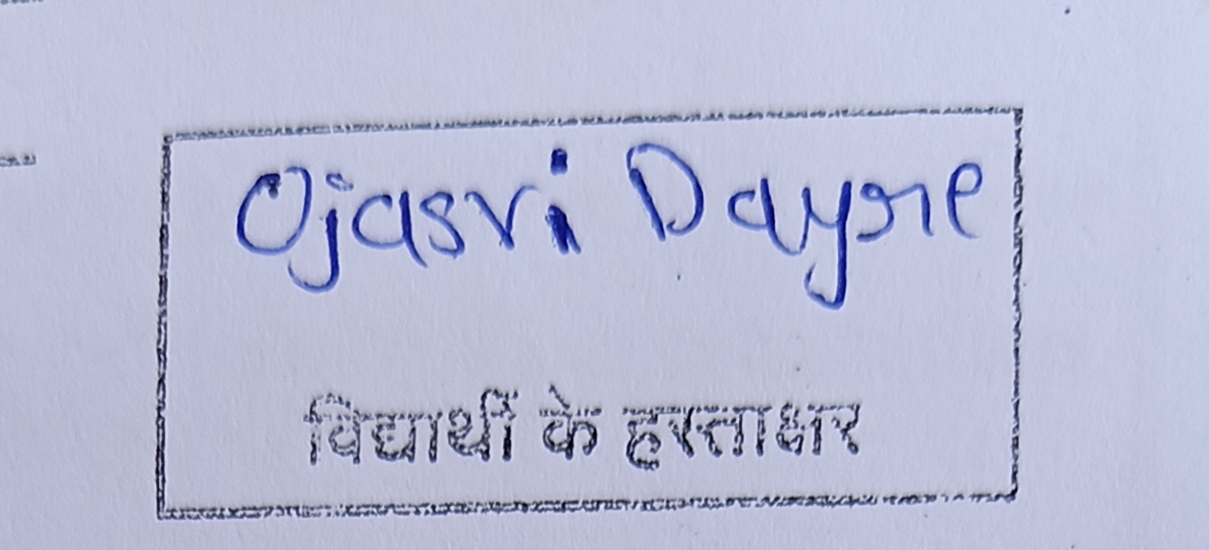 Ojasvi Dayre
विद्यार्थी के हस्ताक्षर